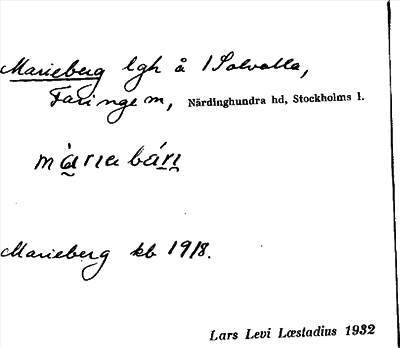 Marieberg lgh å 1 Solvalla,
Faringe m, Närdinghundra hd, Stockholms l.
màrıabárı
Marieberg kb 1918.
Lars Levi Læstadius 1932